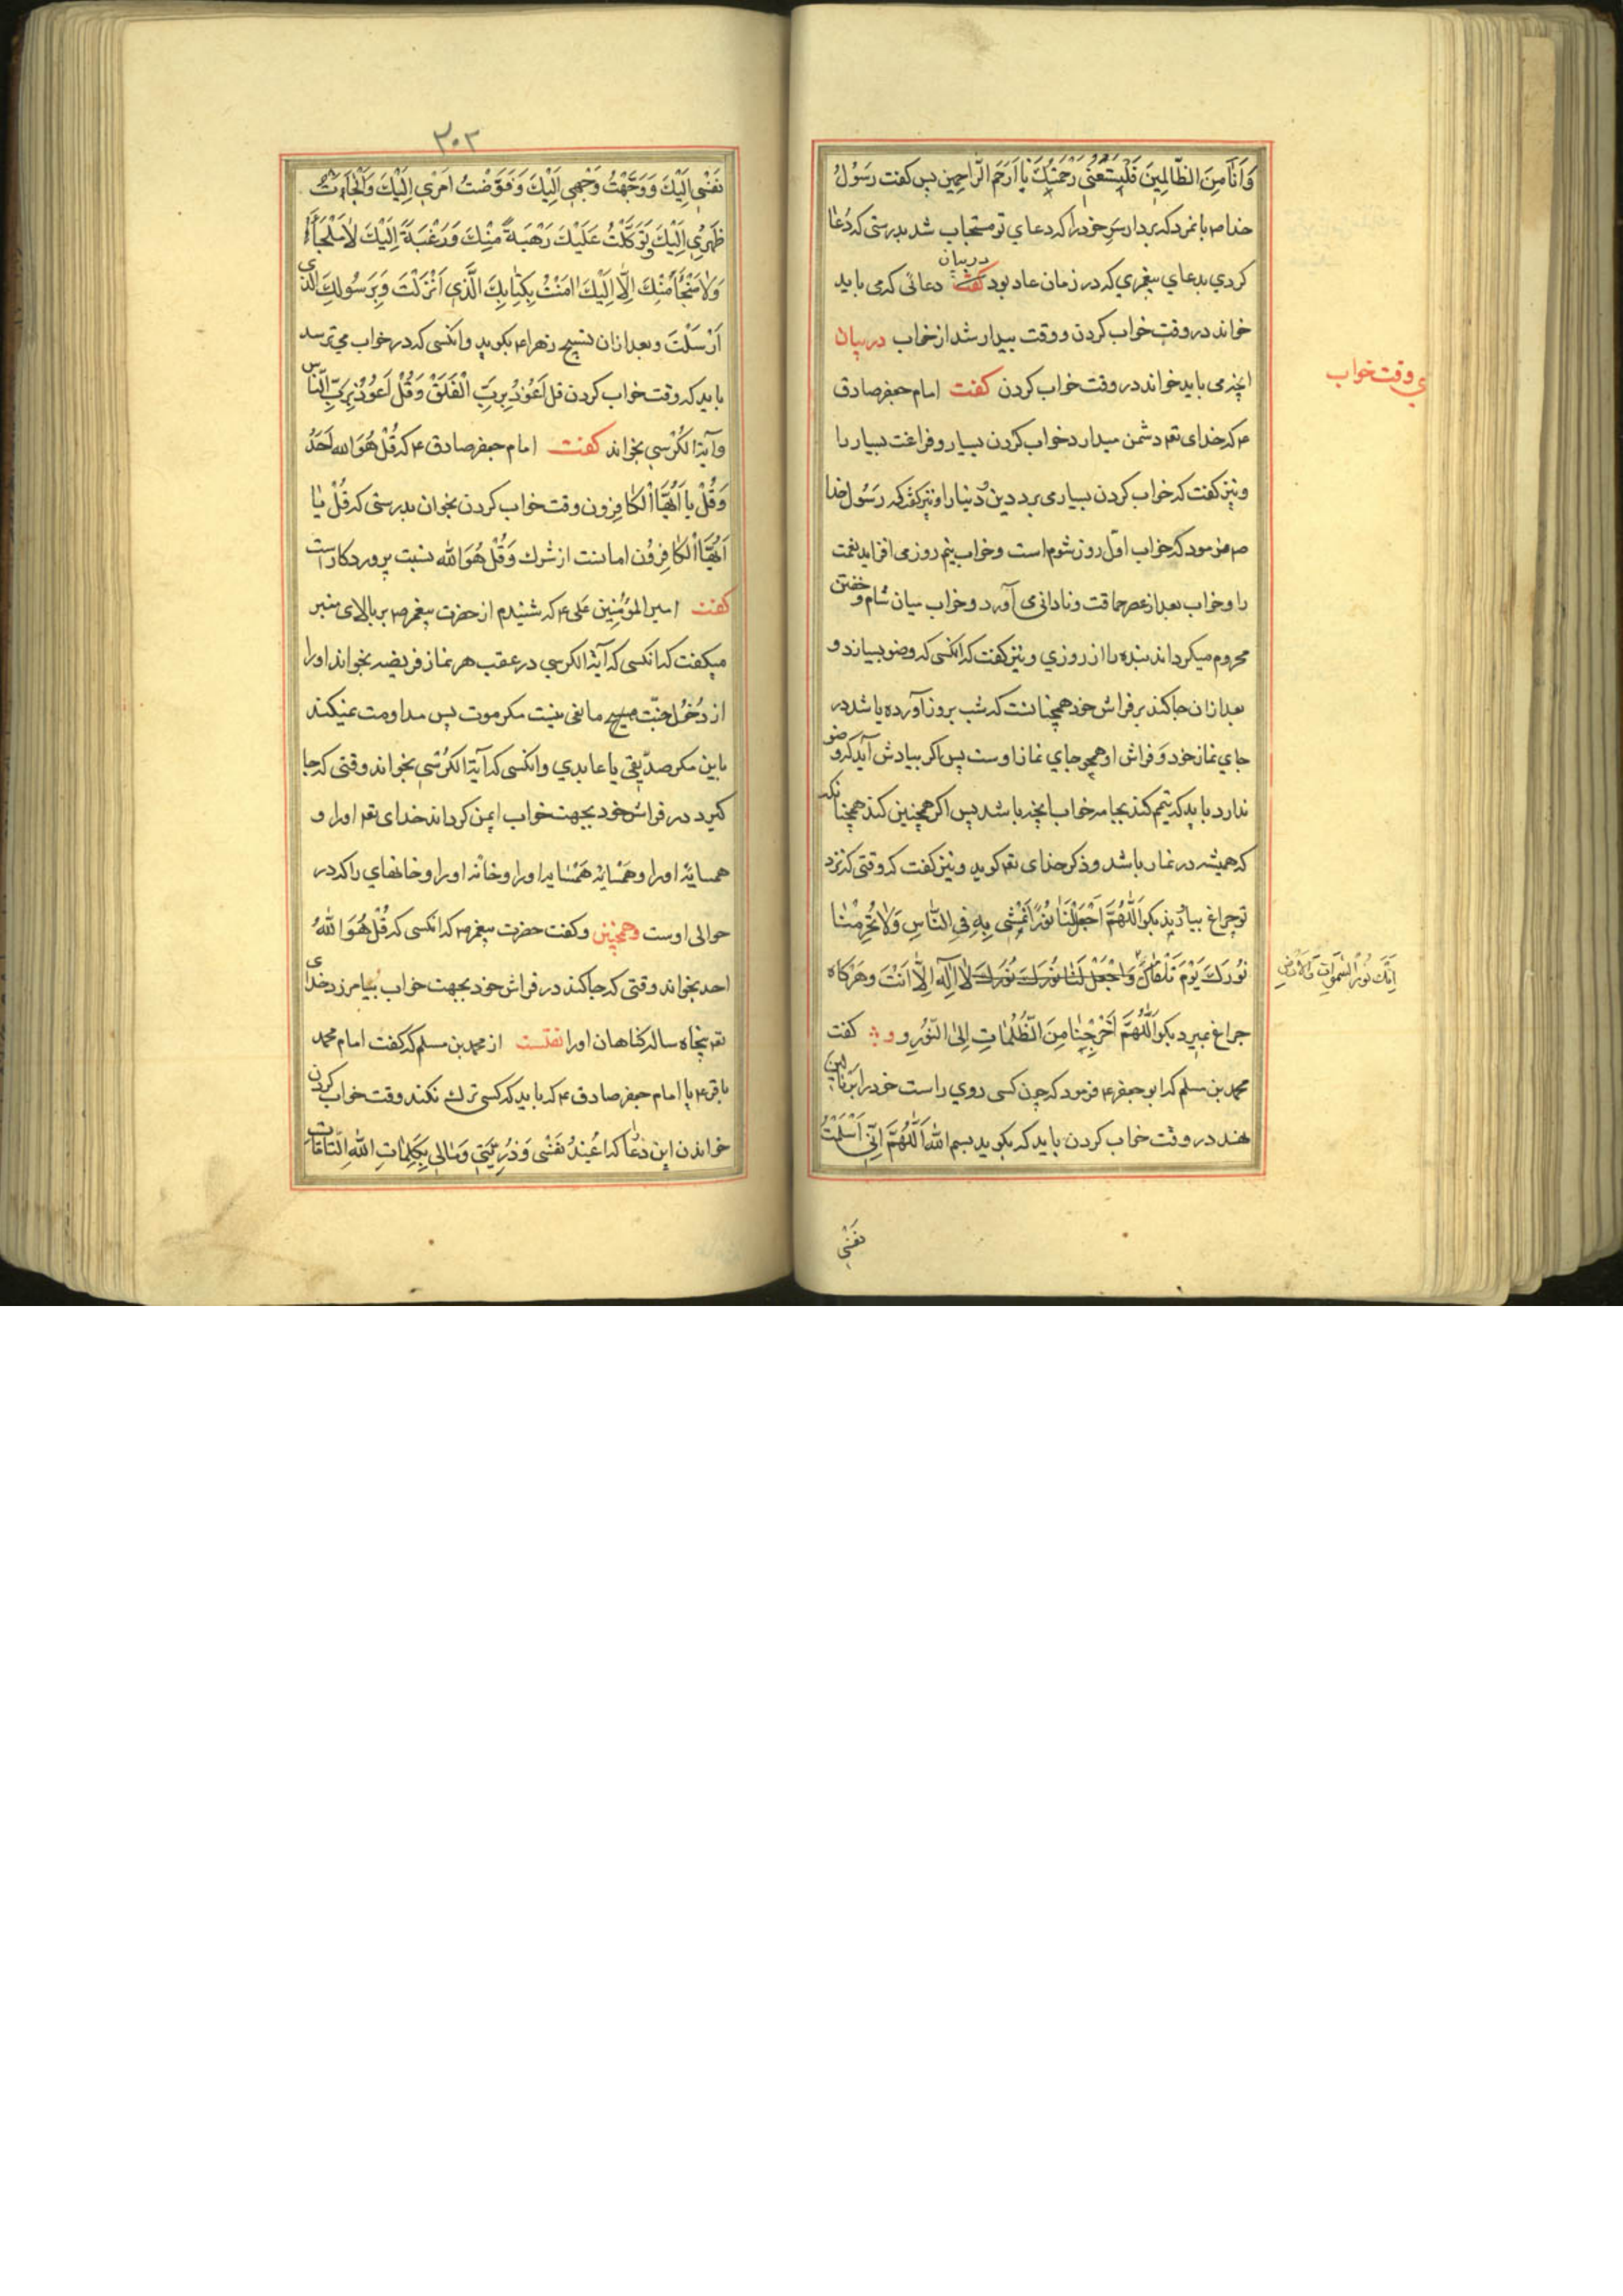 وَاَنَا مِنَ الظَّالِمِينَ فَلْيَسَعْنِى رَحْمَتُكَ يٰا اَرْحَمَ الرّاحِمِين پس كفت رَسُولُ
خدا ص بانمرد كه بردار سَرِ خود را كه دعاي تو مستجاب شد بدرستى كه دُعٰا
كردي بدعاي پيغمبري كه در زمان عاد بود در بيان دعائى كه مى بايد
خواند در وقت خواب كردن و وقت بيدار شد از خواب در بيان
انچه مى بايد خواند در وقت خواب كردن كفت امام جعفر صادق
ي وقت خواب
ع كه خداى تعه دشمن ميدارد خواب كردن بسيار و فراغت بسيار را
و نيز كفت كه خواب كردن بسيار مى برد دين و دُنيا را و نيز كفت كه رَسُول خدا
ص فرمود كه خواب اوّل روز شوم است و خواب نيم روز مى افزايد نعمت
را و خواب بعد از عصر حماقت و نادانى مى آورد و خواب ميان شام و خفتن
محروم ميكرداند بنده را از روزي و نيز كفت كه انكسى كه وضو بسازد و
بعد ازان جا كند بر فراش خود همچنانست كه شب بروز آورده باشد در
جاي نماز خود وَ فراش او همچو جاي نماز اوست پس اكر بيادش آيد كه وضو
ندارد بايد كه تيمم كند بجامه خواب انچه باشد پس اكر همچنين كند همچنانكه
كه هميشه در نماز باشد و ذكر خداى تعه كويد و نيز كفت كه وقتى كه نزد
تو چراغ بيارند بكو اَللّٰهُمَّ اجْعَلْ لَنٰا نُورًا نَمْشِى بِهِ فِى النّٰاسِ وَلٰا تُحْرِمْنٰا
نُورَكَ يَوْمَ نَلْقٰاكَ وَاجْعَلْ لَنٰا نُورَكَ نُورَكَ لٰا اِلٰهَ اِلّٰا اَنْتَ وَهَركاه
اِنَّكَ نُورُ السَّمٰوٰاتِ وَالْاَرْضِ
چراغ بميرد بكو اَللّٰهُمَّ اَخْرِجْنٰا مِنَ الظُّلُمٰاتِ اِلىٰ النّورِ و كفت
محمد بن مسلم كه ابو جعفر ع فرمود كه چون كسى روي راست خود را بر بالين
نهند در وقت خواب كردن بايد كه بكويد بسم اللّٰه اَللّٰهُمَّ اِنِّى اَسْلَمْتُ
نفسى
٣٠٢
نَفْسِى اِلَيْكَ وَوَجَّهْتُ وَجْهِى اِلَيْكَ وَفَوَّضْتُ اَمْرِى اِلَيْكَ وَاَلْجَأْتُ
ظَهْرِى اِلَيْكَ وَتَوَكَّلْتُ عَلَيْكَ رَهْبَةً مِنْكَ وَرَغْبَةً اِلَيْكَ لٰا مَلْجَأَ
وَلٰا مَنْجٰأَ مِنْكَ اِلّٰا اِلَيْكَ اٰمَنْتُ بِكِتٰابِكَ الَّذِى اَنْزَلْتَ وَبِرَسُولِكَ الَّذى
اَرْسَلْتَ و بعد ازان تسبيح زهرا ع بكويد و انكسى كه در خواب مى ترسد
بايد كه وقت خواب كردن قل اَعُوذُ بِرَبِّ الْفَلَقْ وَقُلْ اَعُوذُ بِرَبِّ النّاس
و آية الكُرْسِي بخواند كفت امام جعفر صادق ع كه قُلْ هُوَ اللّه اَحَدْ
وَقُلْ يا اَيُّهَا الْكٰافِرُون وقت خواب كردن بخوان بدرستى كه قُلْ يٰا
اَيُّهَا الْكٰافِرُون امانست از شرك وَقُلْ هُوَ اللّٰه نسبت پروردكار است
كفت امير المؤمنين عَلى ع كه شنيدم از حضرت پيغمبر ص بر بالاى منبر
ميكفت كه انكسى كه آية الكرسي در عقب هر نماز فريضه بخواند او را
از دُخُول جنّت هيچ مانعى نيست مكر موت پس مداومت نميكند
باين مكر صدّيقى يا عابدي و انكسى كه آية الكُرْسِي بخواند وقتى كه جا
كيرد در فراش خود بجهت خواب ايمن كرداند خداى تعه او را و
همسايۀ او را و همسايۀ همسايۀ او را و خانۀ او را و خانهاي را كه در
حوالى اوست وهمچنين و كفت حضرت پيغمبر ص كه انكسى كه قُلْ هُوَ اللّٰهُ
احد بخواند وقتى كه جا كند در فراش خود بجهت خواب بيامرزد خداى
تعه پنجاه ساله كناهان او را نقلست از محمد بن مسلم كه كفت امام محمد
باقر ع يا امام جعفر صادق ع كه بايد كه كسى ترك نكند وقت خواب كردن
خواندن اين دُعٰا كه اُعِيذُ نَفْسِى وَذُرِّيَّتِى وَمٰالِى بِكَلِمٰاتِ اللّٰهِ التّٰامّٰاتِ